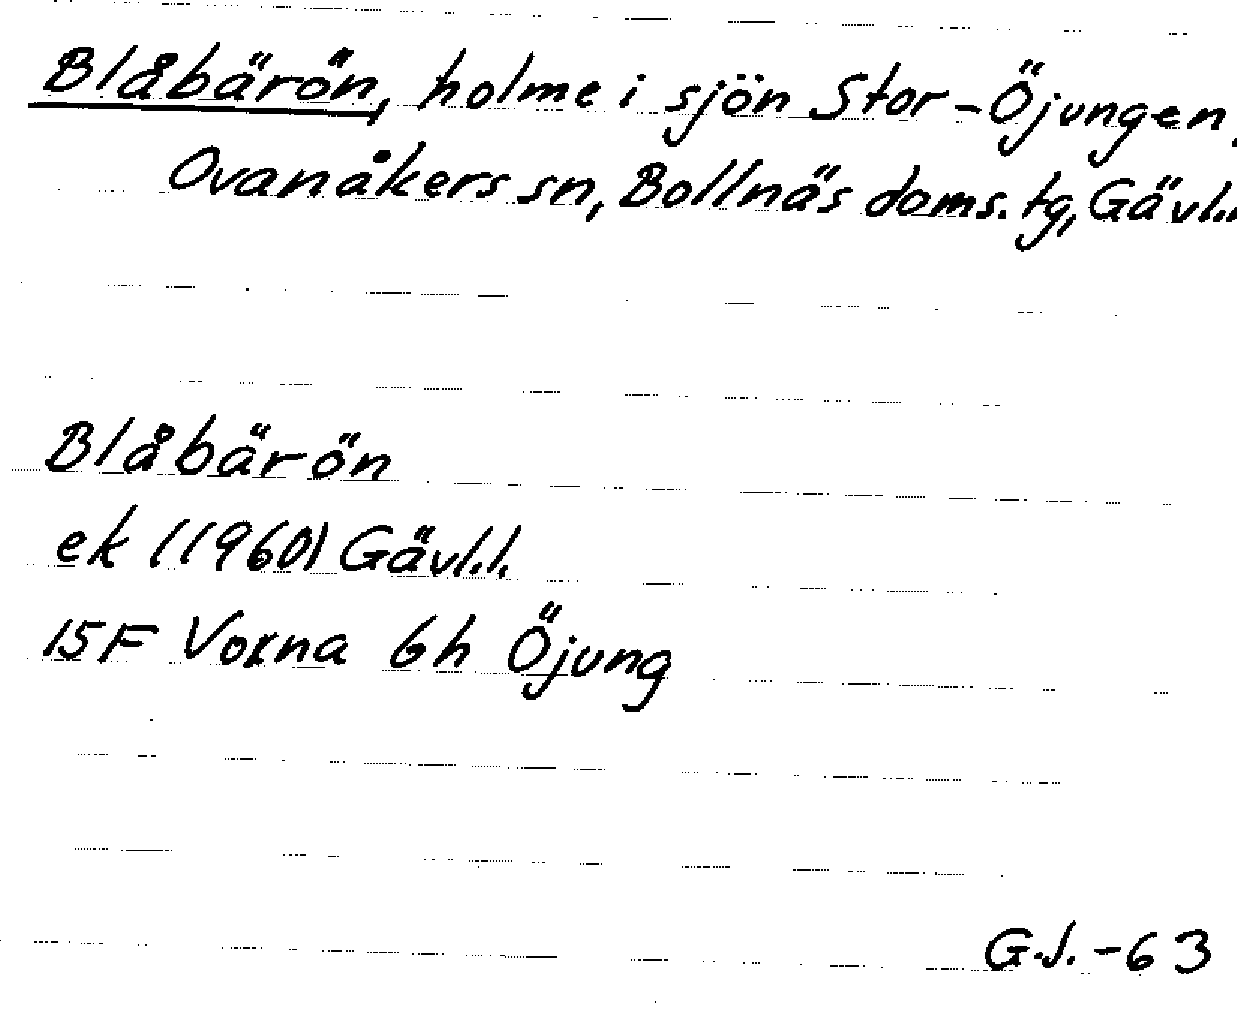 Blåbärön, holme i sjön Stor-Öjungen,
Ovanåkers sn, Bollnäs doms. tg, Gävl.l.
Blåbärön
ek (1960) Gävl.l.
15F Voxna 6h Öjung
G.J. -63